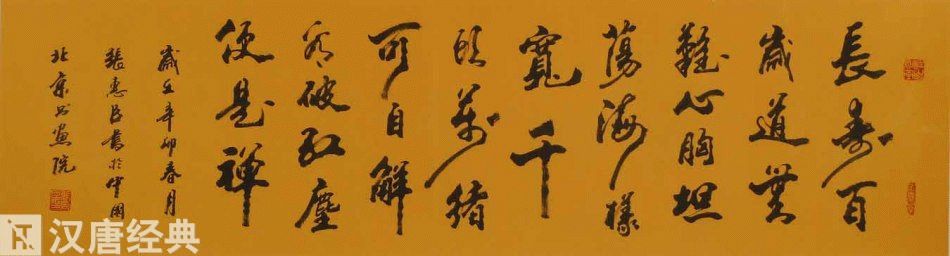 長壽百
歲道無
難心胸坦
蕩海樣
寬千
頭萬緒
可自解
看破紅塵
便是禅
歲在辛卯春月
張惠臣書於中國
北京书画院
汉唐经典